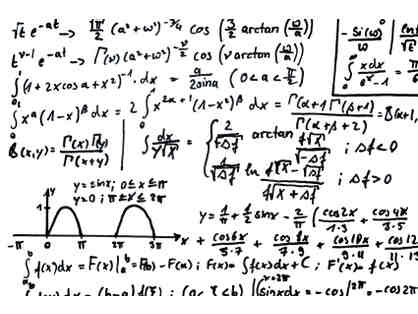 √t e^-at → √π/2 (a²+ω²)^-3/4 cos (3/2 arctan (ω/a))
t^ν-1 e^-at → Γ(ν) (a²+ω²)^-ν/2 cos (ν arctan (ω/a))
- Si(ω)/ω
cos √t
∫₀¹ (1+2x cos a + x²)^-1 . dx = a/2sina (0<a<π/2)
∫₀^∞ x dx/e^x-1 = π
∫₀¹ x^α (1-x)^β dx = 2 ∫₀¹ x^2α+1 (1-x²)^β dx = Γ(α+1)Γ(β+1)/Γ(α+β+2) = B(α+1,
B(x,y) = Γ(x)Γ(y)/Γ(x+y)
∫ dx/y√X = { 2/√-Δf arctan √X/√-Δf ; Δf<0
1/√Δf ln √X - √Δf/√X + √Δf ; Δf>0
y = sinx ; 0≤x≤π
y = 0 ; π≤x≤2π
1
-π 0 π 2π 3π x
y = 1/π + 1/2 sinx - 2/π ( cos2x/1·3 + cos4x/3·5
+ cos6x/5·7 + cos8x/7·9 + cos10x/9·11 + cos12/11·13
∫ₐᵇ f(x)dx = F(x)|ₐᵇ = F(b) - F(a) ; F(x) = ∫f(x)dx + C ; F'(x) = f(x)
x=2π
∫sinx dx = -cos|^2π = -cos2π